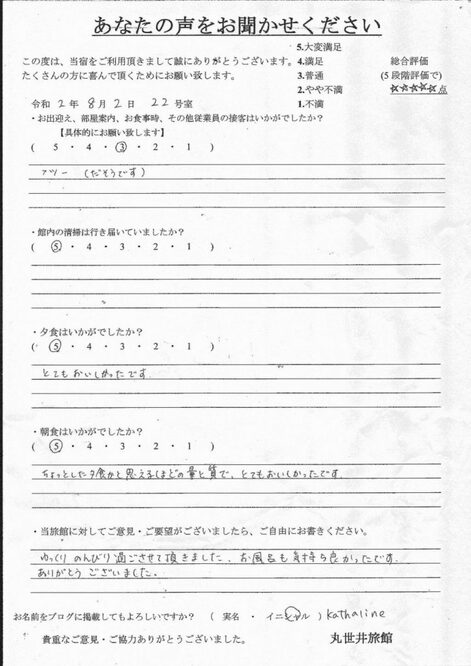 あなたの声をお聞かせください
5.大変満足
この度は、当宿をご利用頂きまして誠にありがとうございます。 4.満足 総合評価
たくさんの方に喜んで頂くためにお願い致します。 3.普通 (5段階評価で)
2.やや不満 ☆☆☆☆☆点
令和 2年 8月 2日 22号室 1.不満
・お出迎え、部屋案内、お食事時、その他従業員の接客はいかがでしたか？
【具体的にお願い致します】
( 5 ・ 4 ・ 3 ・ 2 ・ 1 )
フツー (だそうです)
・館内の清掃は行き届いていましたか？
( 5 ・ 4 ・ 3 ・ 2 ・ 1 )
・夕食はいかがでしたか？
( 5 ・ 4 ・ 3 ・ 2 ・ 1 )
とてもおいしかったです
・朝食はいかがでしたか？
( 5 ・ 4 ・ 3 ・ 2 ・ 1 )
ちょっとした夕食かと思えるほどの量と質で、とてもおいしかったです
・当旅館に対してご意見・ご要望がございましたら、ご自由にお書きください。
ゆっくりのんびり過ごさせて頂きました、お風呂も気持ち良かったです。
ありがとうございました。
お名前をブログに掲載してもよろしいですか？ ( 実名 ・ イニシャル ) kathaline
貴重なご意見・ご協力ありがとうございました。 丸世井旅館